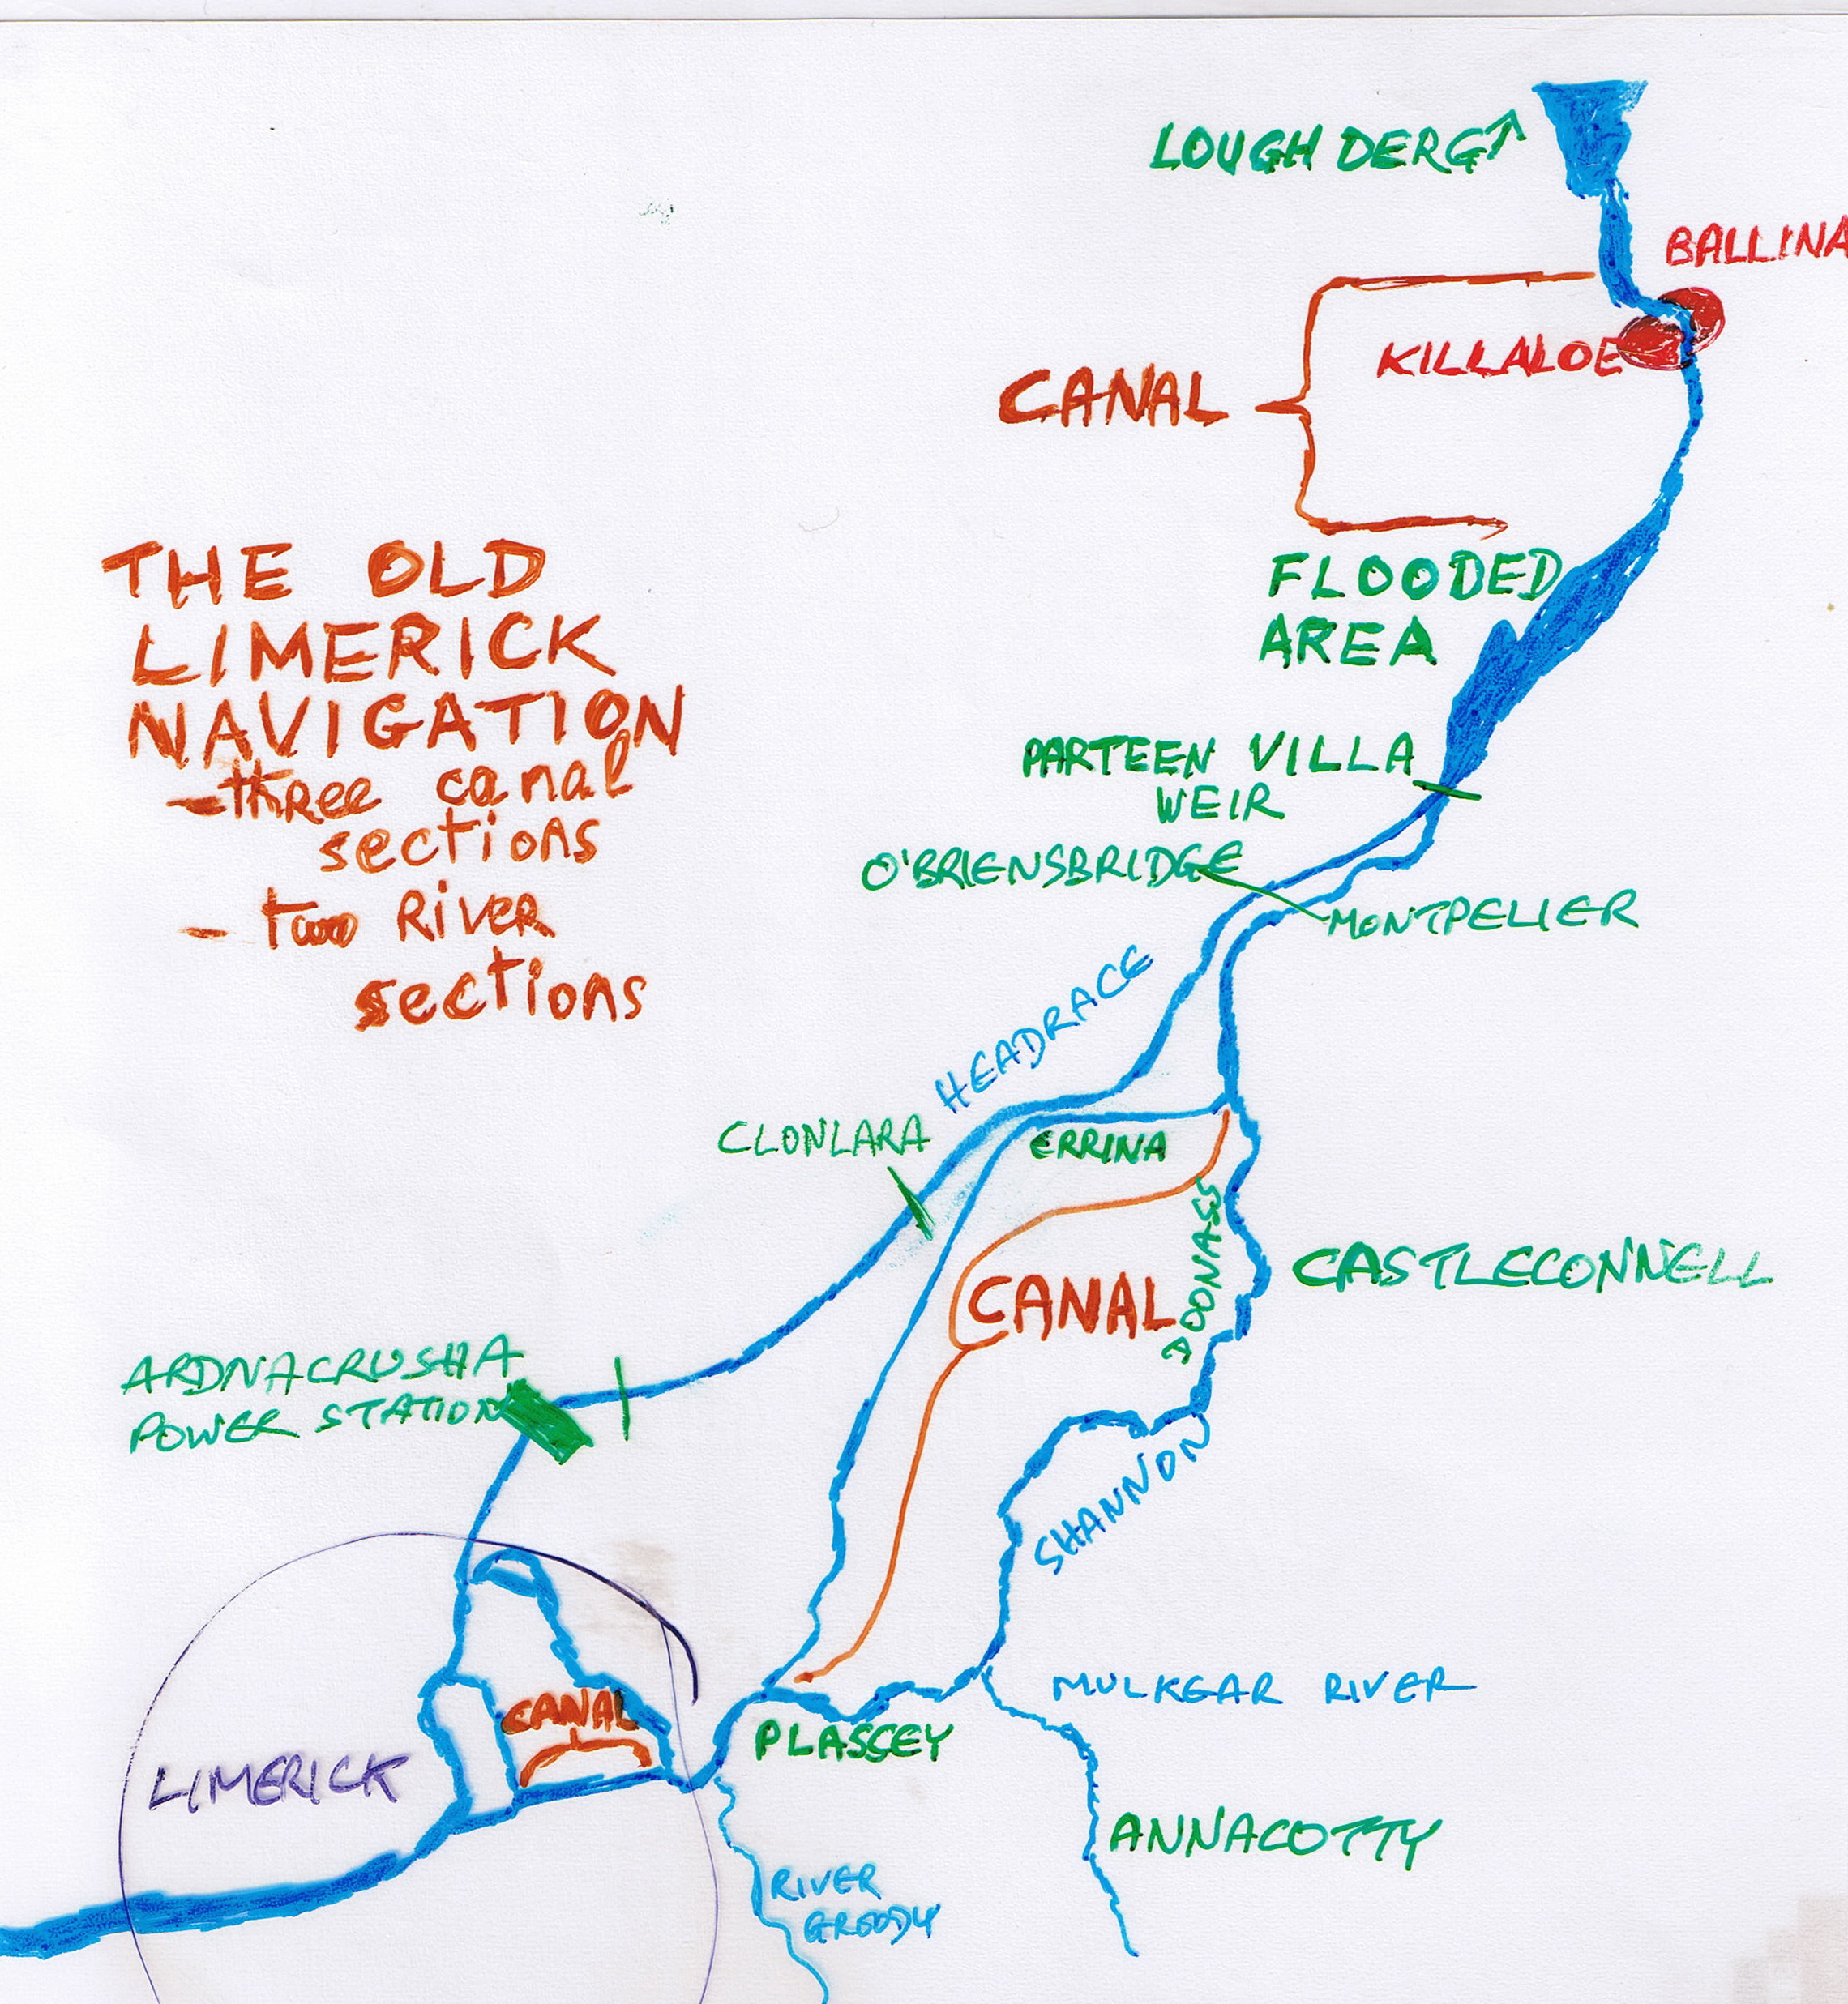 LOUGH DERG↑
BALLINA
KILLALOE
CANAL
FLOODED
AREA
THE OLD
LIMERICK
NAVIGATION
- three canal
sections
- two River
sections
PARTEEN VILLA
WEIR
O'BRIENSBRIDGE
MONTPELIER
HEADRACE
CLONLARA
ERRINA
ADONASS
CASTLECONNELL
CANAL
ARDNACRUSHA
POWER STATION
SHANNON
MULKEAR RIVER
CANAL
PLASSEY
LIMERICK
ANNACOTTY
RIVER
GROODY